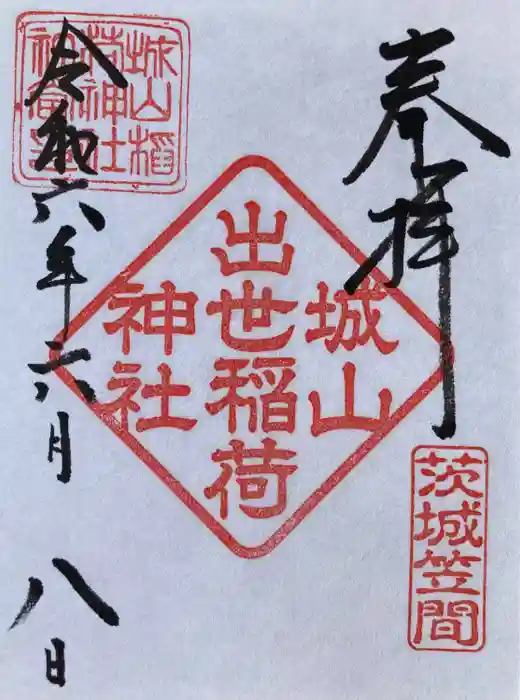 奉拝
城山
出世稲荷
神社
茨城笠間
城山稲
荷神社
令和六年六月八日